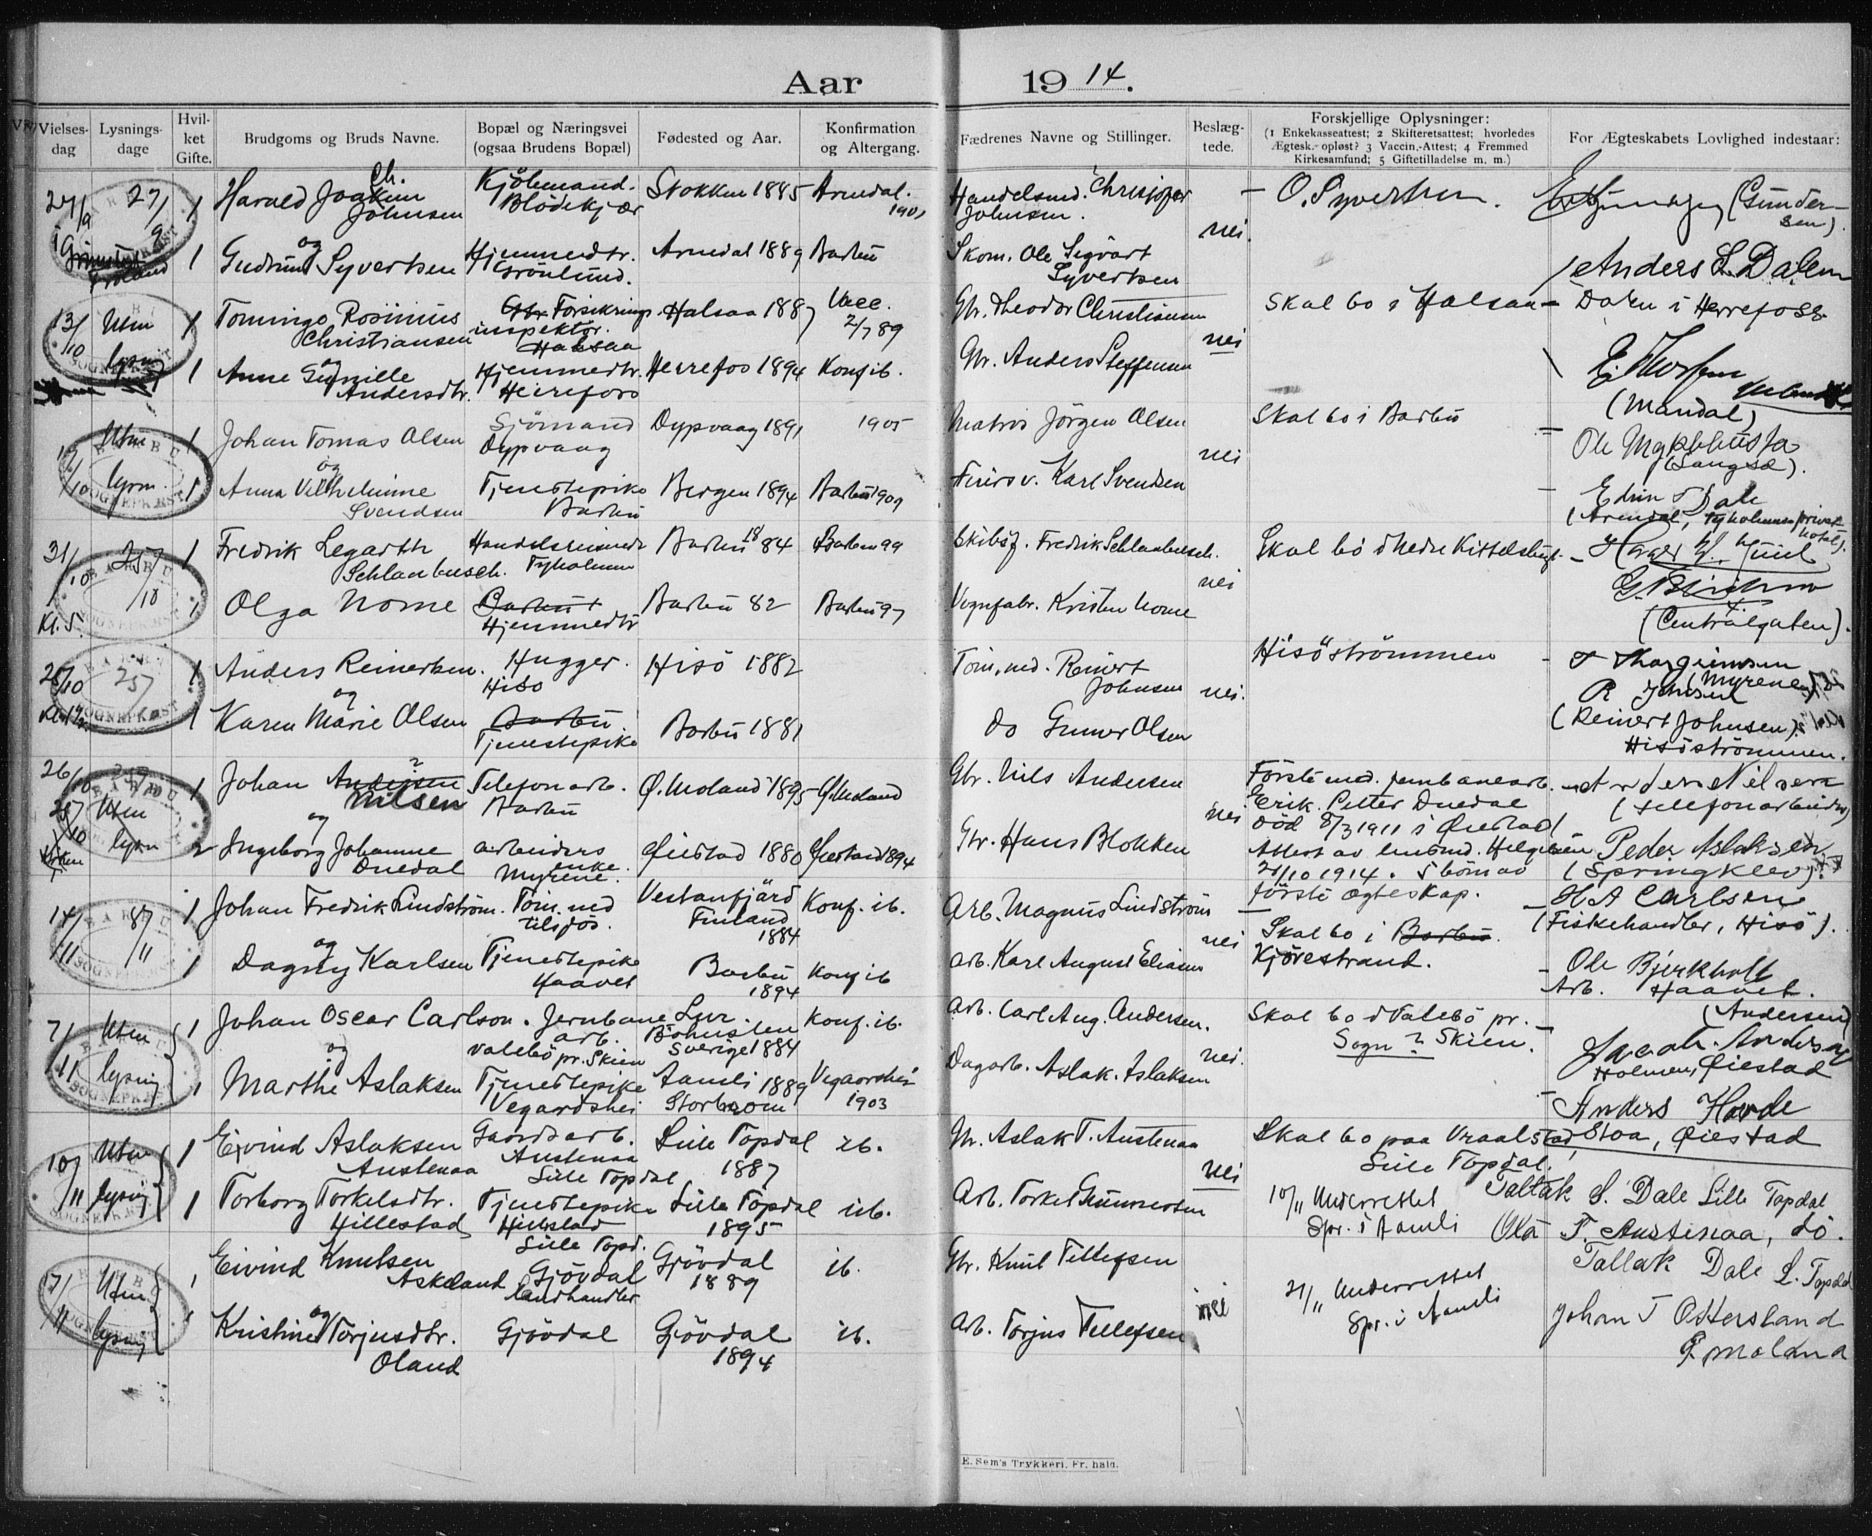 Aar 1914.
Vielses-dag
Lysnings-dage
Hvil-ket Gifte.
Brudgoms og Bruds Navne.
Bopæl og Næringsvei (ogsaa Brudens Bopæl)
Fødested og Aar.
Konfirmation og Altergang.
Fædrenes Navne og Stillinger.
Beslæg-tede.
Forskjellige Oplysninger:
(1 Enkekasseattest; 2 Skifteretsattest; hvorledes Ægtesk. opløst? 3 Vaccin.-Attest; 4 Fremmed Kirkesamfund; 5 Giftetilladelse m. m.)
For Ægteskabets Lovlighed indestaar:
27/9 27/9 1 Harald Joakim Ch. Johnsen Kjøbmand. Blödekjær Stokken 1885 Arendal. 1901 Handelsmd. Christopher Johnsen. – O. Syvertsen. (Gundersen).
og nei
1 Gudrun Syvertsen Hjemmedtr. Grönlund. Arendal 1889 Barbu Skom. Ole Sigvart Syvertsen Anders L. Dalen
13/10 Uten lysn 1 Tominge Rosinius Christiansen Forsikrings-inspektör. Halsaa Halsaa 1887 Vacc. 2/7 89 Gbr. Theodor Christiansen Skal bo i Halsaa – Dalen i Herrefoss
og nei
1 Anne Gunille Andersdtr. Hjemmedtr. Herrefoss Herrefos 1894 Konf ib. Gbr. Anders Steffensen (Mandal)
Uten lysn. 1 Johan Tomas Olsen Sjömand Dypvaag Dypvaag 1891 1905 Matros Jörgen Olsen Skal bo i Barbu – Ole
og nei (Langsæ).
1 Anna Vilhelmine Svendsen Tjenestepike Barbu Bergen 1894 Barbu 1909 Karl Svendsen – Edvin Dale
31/10 25/10 1 Fredrik Legarth Schlanbusch. Tyholmen Barbu 1884 Barbu 99 Skibsf. Fredrik Schlanbusch.
nei
Kl. 5. 1 Olga Nome Barbu Hjemmedtr Barbu 82 Barbu 97 Vognfabr. Kristen Nome (Centralgaten).
25/10 25/ 1 Anders Reinertsen. Hugger. Hisö Hisö 1882 Töm.md. Reinert Johnsen Hisöströmmen – (Myrene)
og nei.
1 Karen Marie Olsen Barbu Tjenestepike Barbu 1881 do Gunner Olsen (Reinert Johnsen) Hisöströmmen.
26/10 Uten lysn 1 Johan Andersen Nilsen Telefonarb. Barbu Ø. Moland 1895 Ø. Moland Gbr. Nils Andersen Förste md. jernbanearb. Erik Petter Duedal död 8/3 1911 i Øiestad – Anders Nilsen (telefonarbeider)
og nei
2 Ingeborg Johanne Duedal arbeiders enke. Myrene. Øiestad 1880 Øiestad 1894 Gbr. Hans Blokken Attest av lensmd. Helgesen 20/10 1914. 5 börn av förste ægteskap. Peder Aslaksen (Springklev).
14/11 8/11 1 Johan Fredrik Lindström. Töm.md tilsjös. Vestanfjärd Finland 1884 Konf. ib. Arb. Magnus Lindström Skal bo i Barbu. Kjörestrand. – H A Carlsen (Fiskehandler, Hisö).
og nei
1 Dagny Karlsen Tjenestepike Haavet Barbu 1894 Konf ib Arb. Karl August Eliasen – Ole Bjerkholt Arb. Haavet.
7/11 Uten lysning 1 Johan Oscar Carlson. Jernbanearb. Valebö pr. Skien Lur Bohuslen Sverige 1884 Konf. ib. Arb. Carl Aug. Andersen. Skal bo i Valebö pr. Skien. Sogn? – (Andersen) Jacob Anders Holmen, Øiestad
og nei.
1 Marthe Aslaksen Tjenestepike Vegardshei Aamli 1889 Storbrom Vegaardshei 1903 Dagarb. Aslak Aslaksen – Anders Hovde Stoa, Øiestad
10/11 Uten lysning 1 Eivind Aslaksen Austenaa Gaardsarb. Austenaa Lille Topdal Lille Topdal 1887 ib. Gbr. Aslak T. Austenaa Skal bo paa Vraalstad, Lille Topdal.
nei
1 Torborg Torkelsdtr. Hillestad Tjenestepike Hillestad Lille Topd. Lille Topdal 1895 ib. Arb. Torkel Gunnersen 10/11 Underrettet Spr. i Aamli Taltak S. Dale Lille Topdal Ola T. Austenaa, do.
17/11 Uten lysning 1 Eivind Knutsen Askeland Gjövdal landhandler Gjövdal 1889 ib. Gbr. Knut Tellefsen Tallak Dale L. Topdal
og nei 21/11 Underrettet Spr. i Aamli
1 Kristine Torjusdtr. Oland Gjövdal Gjövdal 1894 ib. Arb. Torjus Tellefsen Johan T Ottersland Ø moland
E. Sem's Trykkeri, Fr. hald.
BARBU SOGNEPRÆST